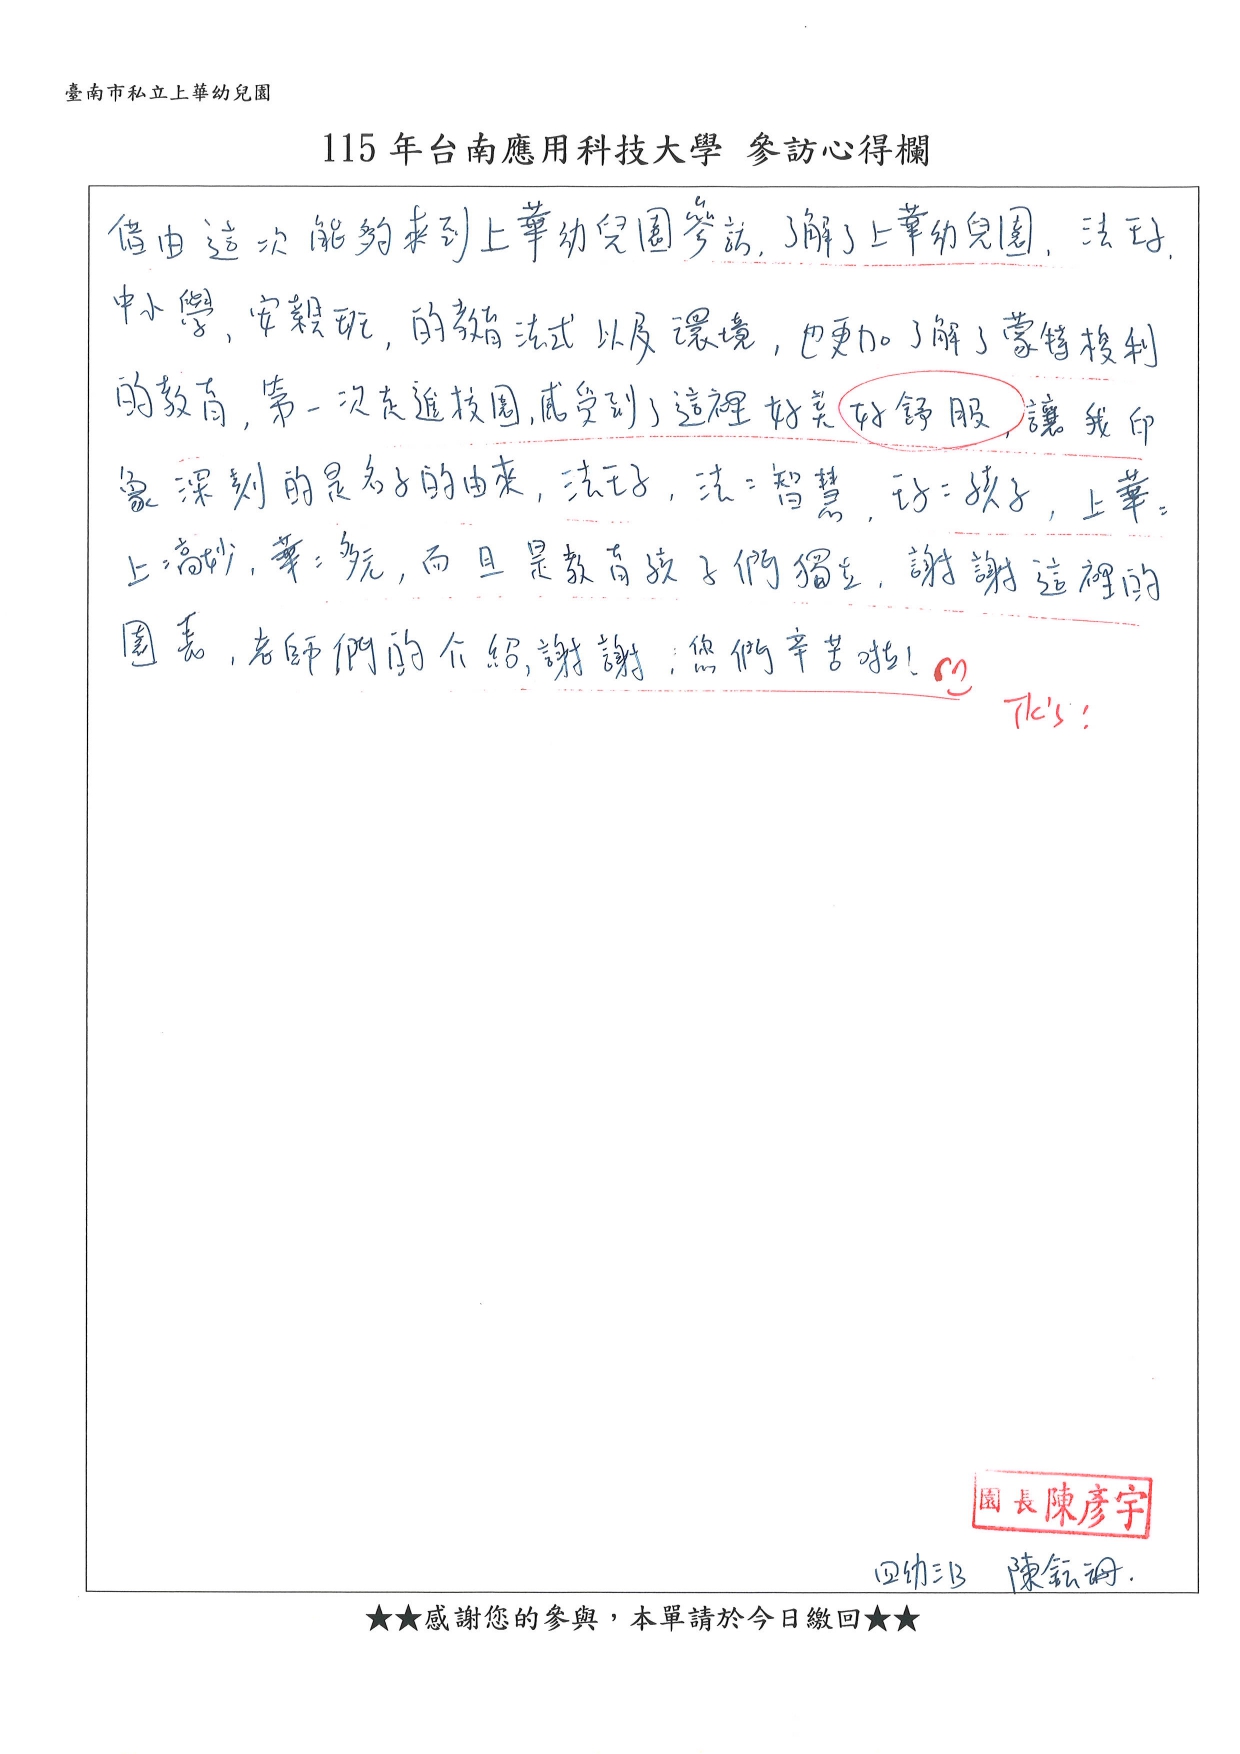 臺南市私立上華幼兒園
115 年台南應用科技大學 參訪心得欄
借由這次能夠來到上華幼兒園參訪,了解了上華幼兒園,法子,
中小學,安親班,的教育法式以及環境,也更加了解了蒙特梭利
的教育,第一次走進校園,感受到了這裡好美好舒服,讓我印
象深刻的是名子的由來,法子,法=智慧,=孩子,上華=
上:高妙,華:多元,而且是教育孩子們獨立,謝謝這裡的
園長,老師們的介紹,謝謝:您們辛苦啦!
Tk's!
園長陳彥宇
四幼三B 陳鈺珊.
★★感謝您的參與,本單請於今日繳回★★